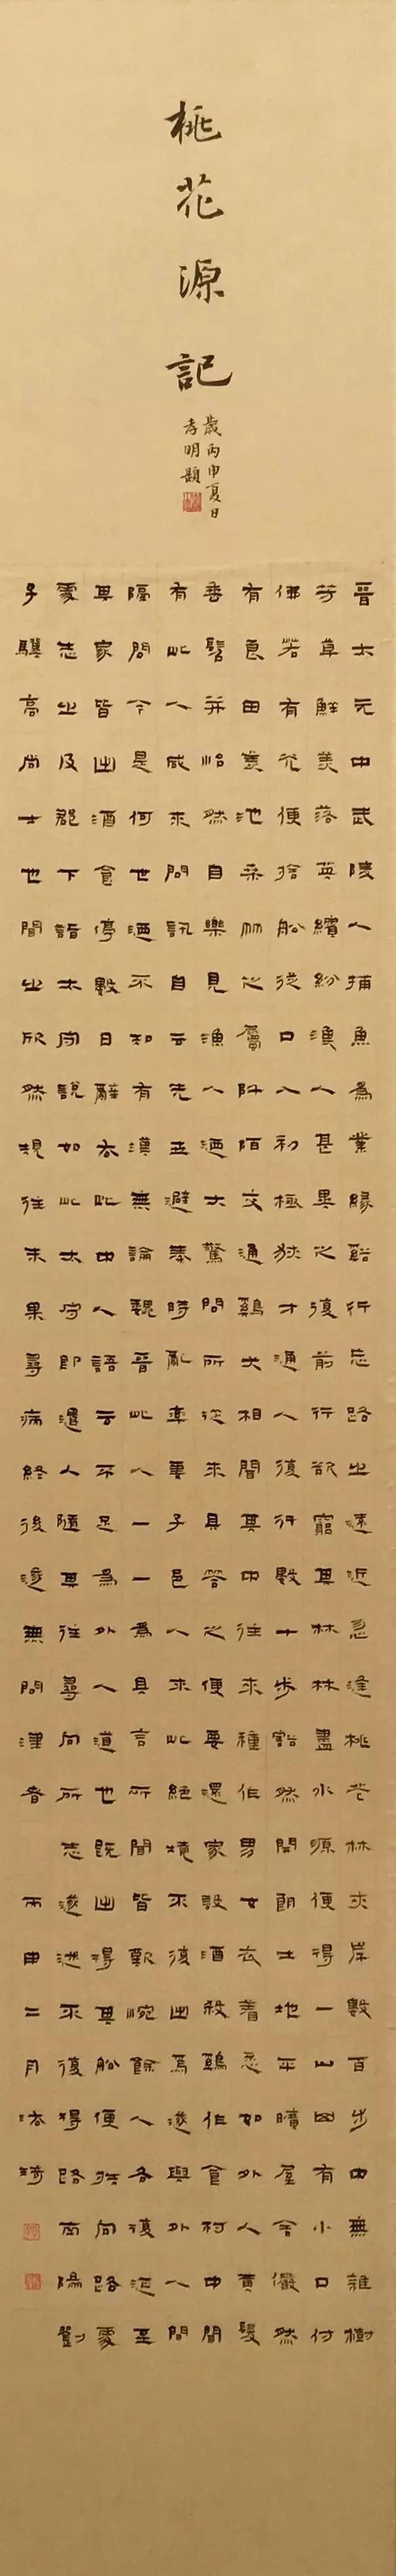 桃花源記
歲丙申夏日
孝明題
晉太元中武陵人捕魚為業緣谿行忘路之遠近忽逢桃花林夾岸數百步中無雜樹
芳草鮮美落英繽紛漁人甚異之復前行欲窮其林林盡水源便得一山山有小口仿
佛若有光便捨船從口入初極狹才通人復行數十步豁然開朗土地平曠屋舍儼然
有良田美池桑竹之屬阡陌交通鷄犬相聞其中往來種作男女衣着悉如外人黃髮
垂髫并怡然自樂見漁人迺大驚問所從來具答之便要還家設酒殺鷄作食村中聞
有此人咸來問訊自云先世避秦時亂率妻子邑人來此絕境不復出焉遂與外人間
隔問今是何世迺不知有漢無論魏晉此人一一為具言所聞皆歎惋餘人各復延至
其家皆出酒食停數日辭去此中人語云不足為外人道也既出得其船便扶向路處
處志之及郡下詣太守說如此太守即遣人隨其往尋向所志遂迷不復得路南陽劉
子驥高尚士也聞之欣然規往未果尋病終後遂無問津者 丙申二月